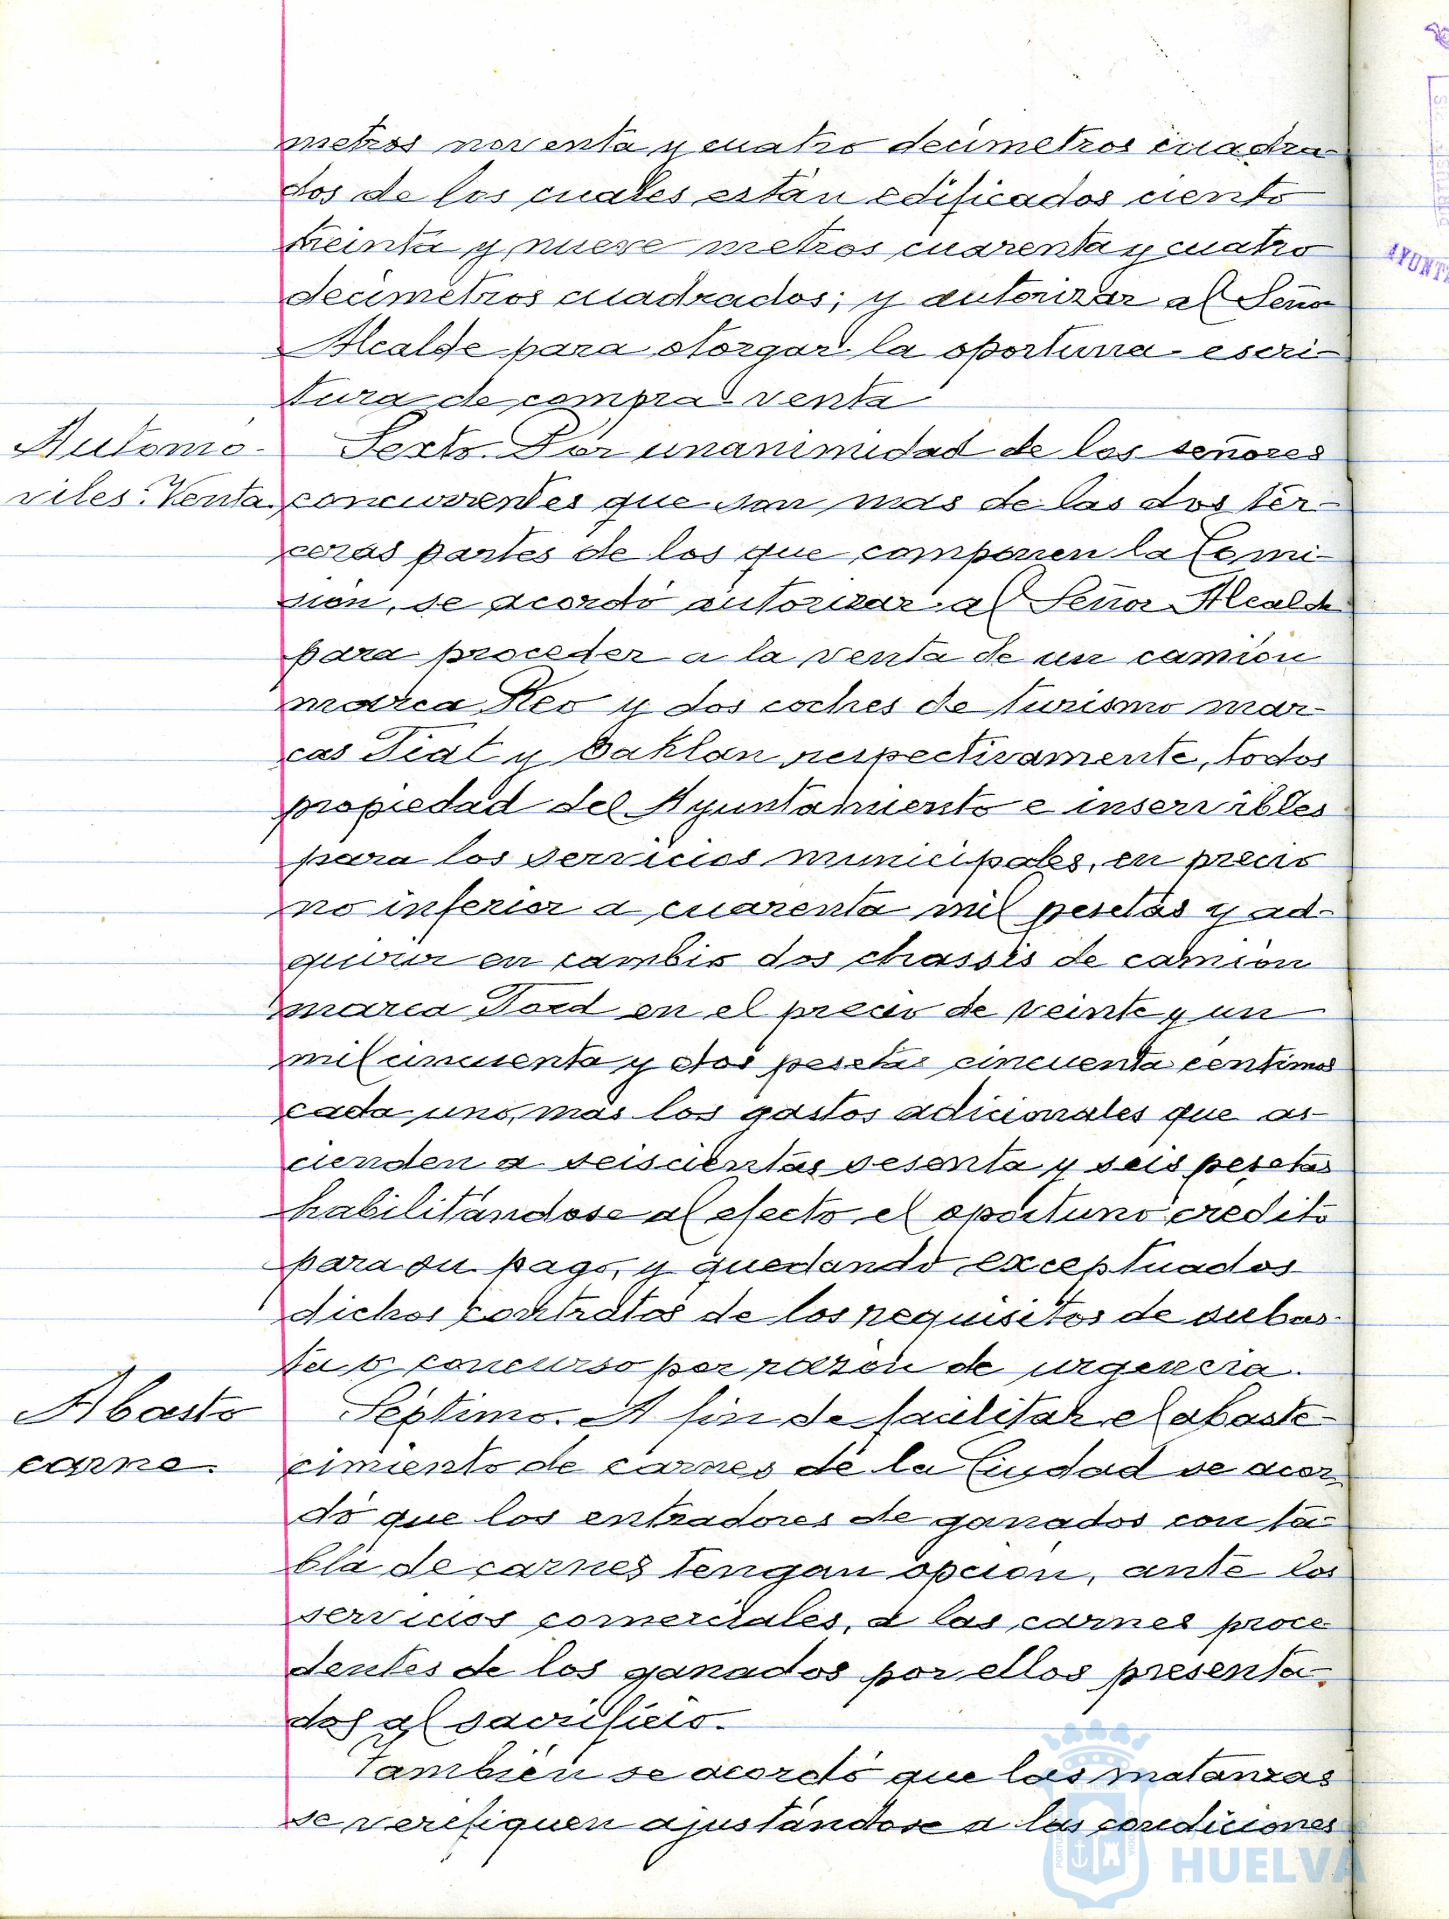 metros noventa y cuatro decimetros cuadra-
dos de los cuales están edificados ciento
treinta y nueve metros cuarenta y cuatro
decimetros cuadrados; y autorizar al Señor
Alcalde para otorgar la oportuna escri-
tura de compra-venta
Automo-
viles. Venta.
Sexto. Por unanimidad de los señores
concurrentes que son mas de las dos ter-
ceras partes de los que componen la Comi-
sión, se acordó autorizar al Señor Alcalde
para proceder a la venta de un camión
marca Reo y dos coches de turismo mar-
cas Fiat y Oaklan respectivamente, todos
propiedad del Ayuntamiento e inservibles
para los servicios municipales, en precio
no inferior a cuarenta mil pesetas y ad-
quirir en cambio dos chassis de camión
marca Ford en el precio de veinte y un
mil cincuenta y dos pesetas cincuenta centimos
cada uno, mas los gastos adicionales que as-
cienden a seiscientas sesenta y seis pesetas
habilitándose al efecto el oportuno crédito
para su pago, y quedando exceptuados
dichos contratos de los requisitos de subas-
ta o concurso por razón de urgencia.
Abasto
carne.
Séptimo. A fin de facilitar el abaste-
cimiento de carnes de la Ciudad se acor-
dó que los entradores de ganados con ta-
bla de carnes tengan opción, ante los
servicios comerciales, a las carnes proce-
dentes de los ganados por ellos presenta-
dos al sacrificio.
También se acordó que las matanzas
se verifiquen ajustándose a las condiciones
HUELVA
AYUNT